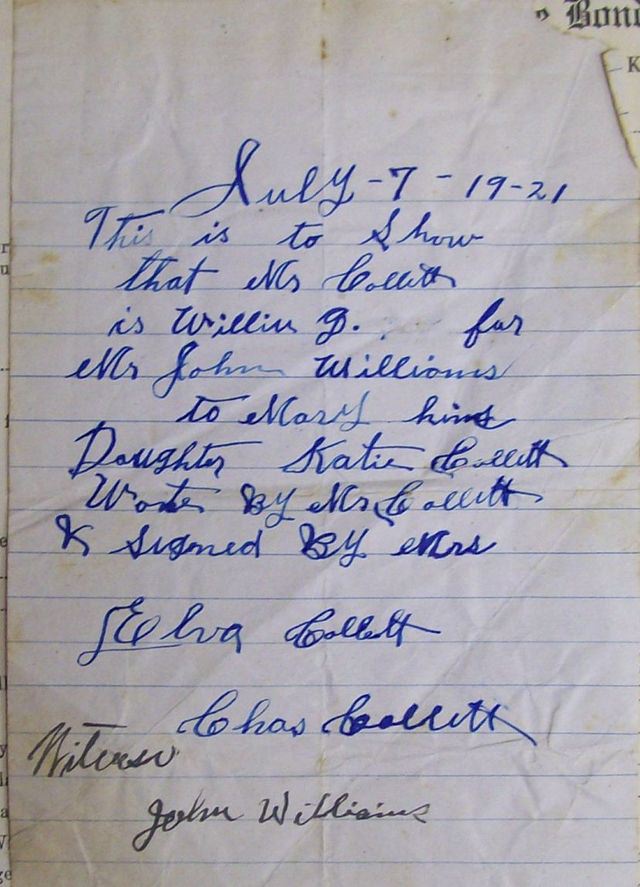 Bond
K
July - 7 - 19-21
This is to Show
that Mr Collett
is Willin g. for
Mr John Williams
to Mary hims
Daughter Katie Collett
Wrote By Mr Collett
& Signed By Mrs
Elva Collett
Chas Collett
Witness
John Williams